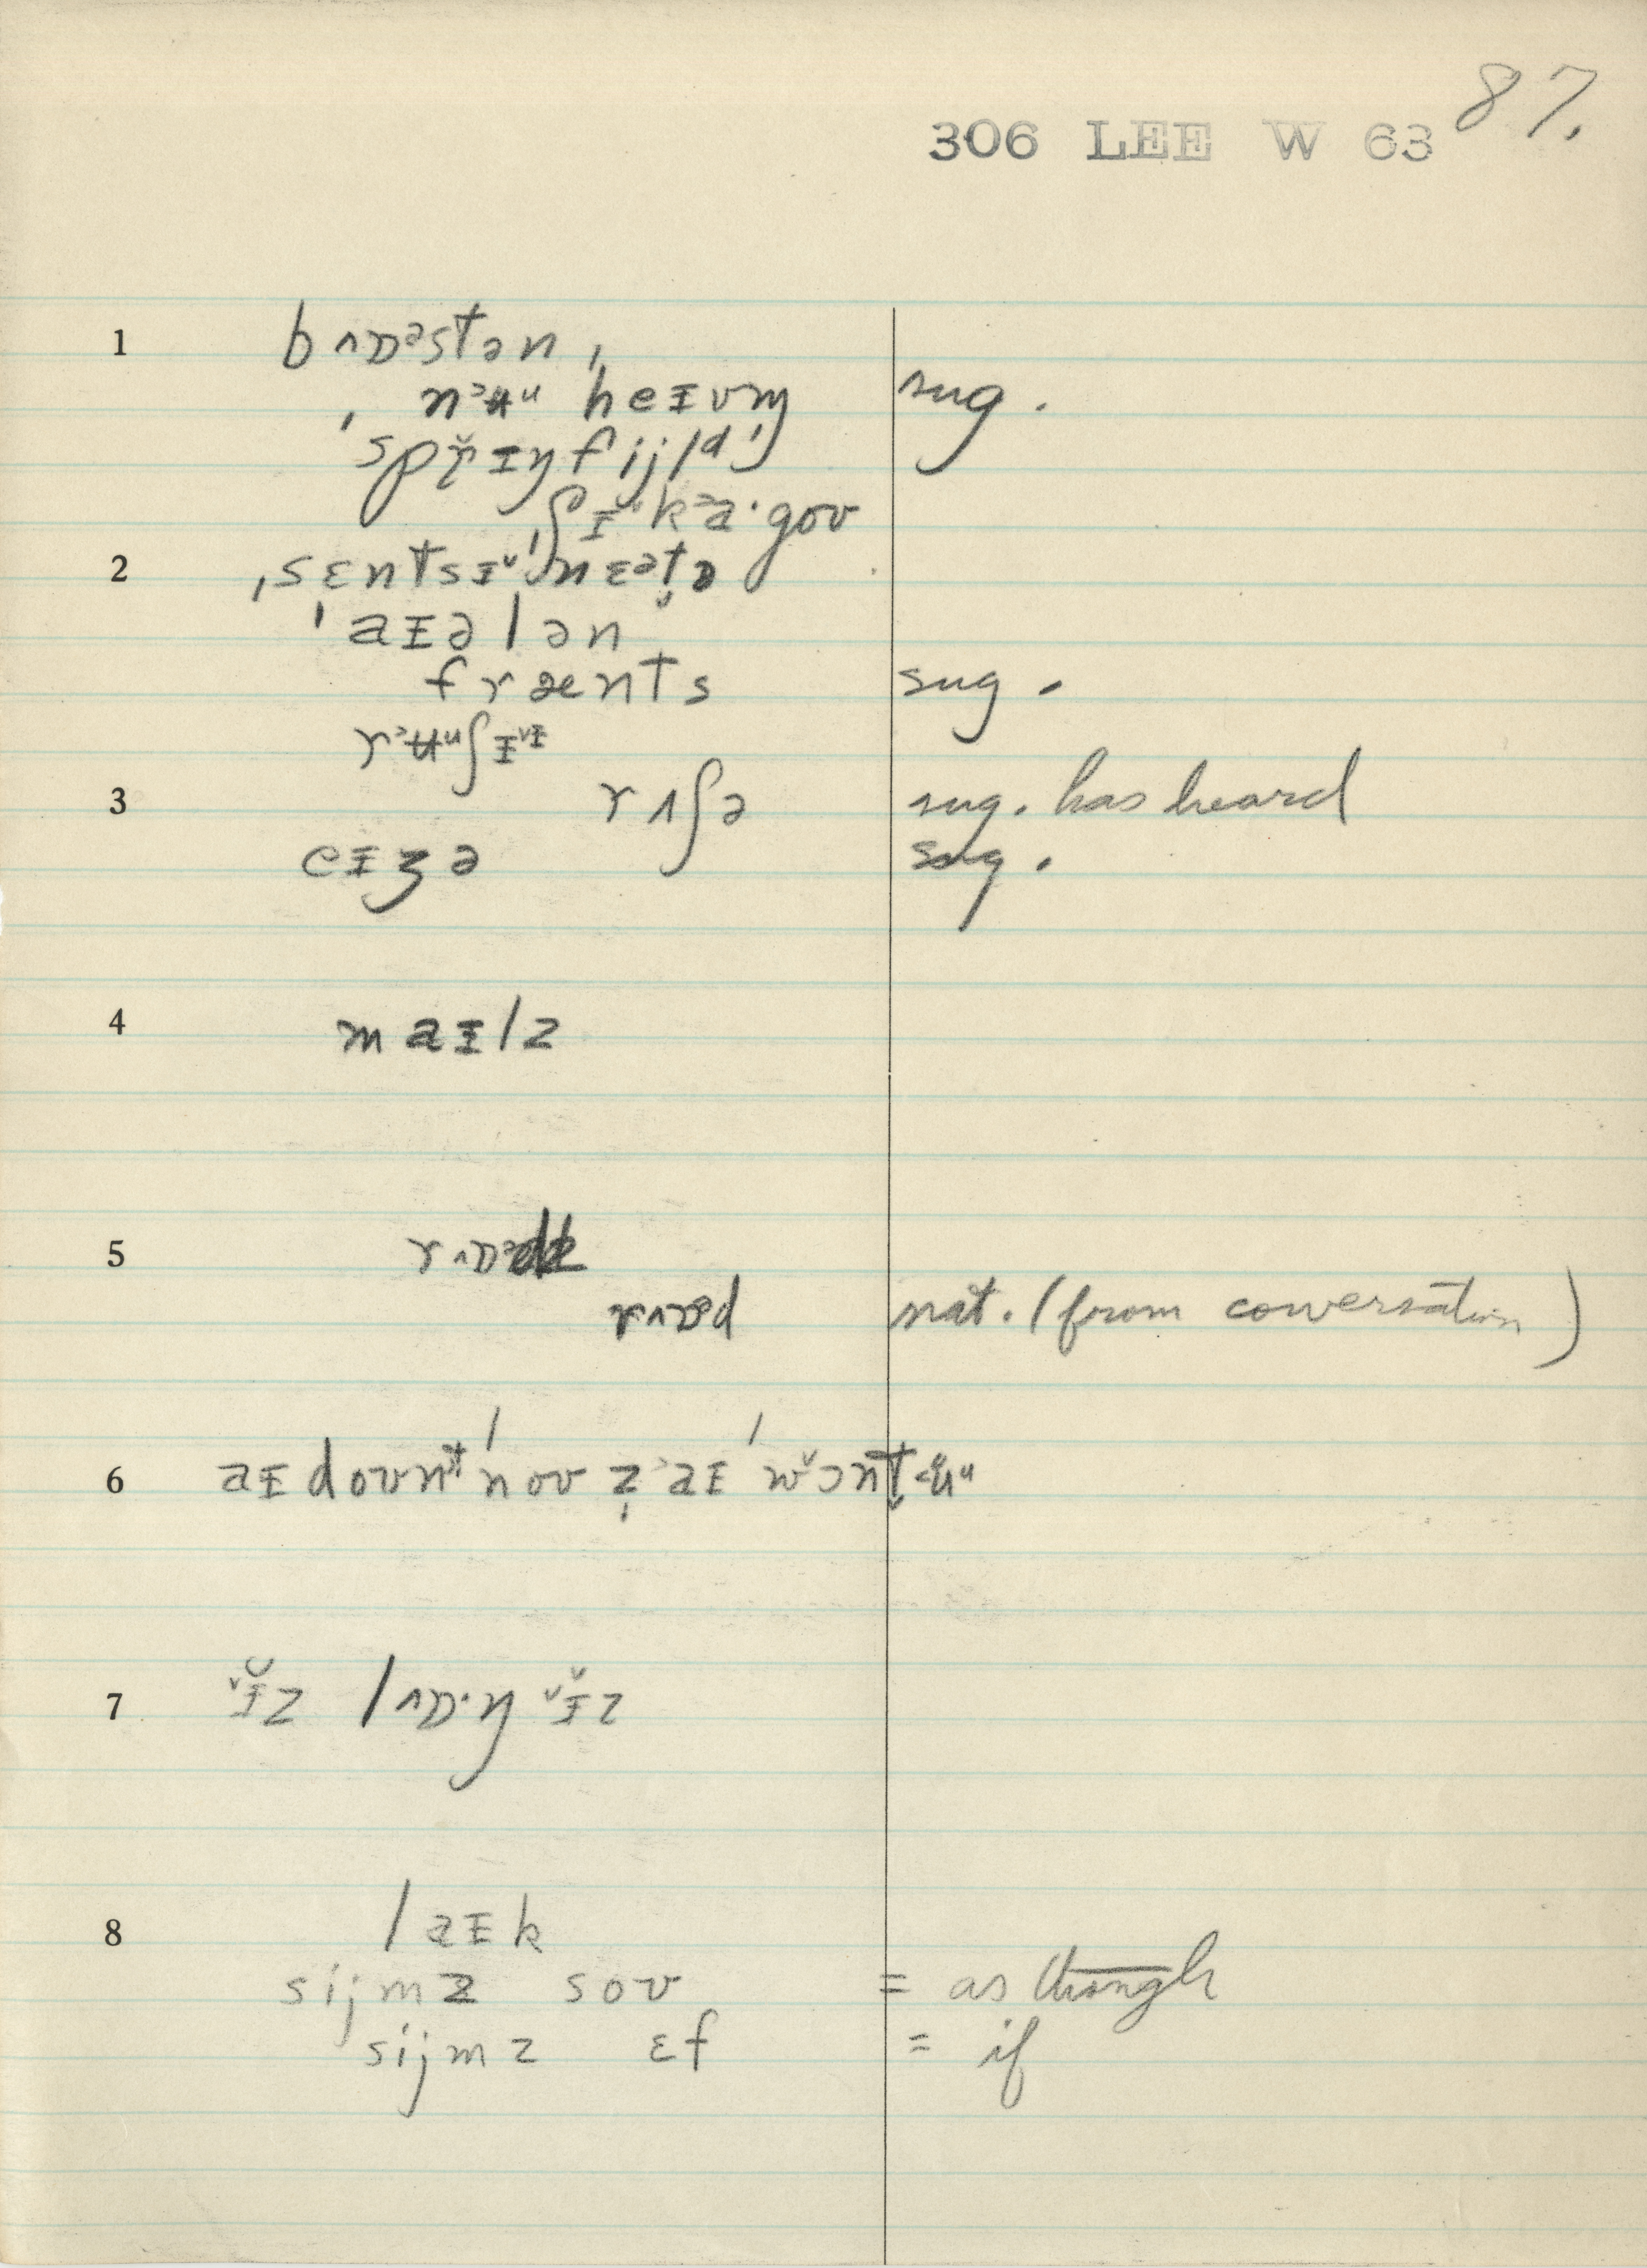 87.
306 LEE W 63
1 bʌɒᵊstən,
ˌnᵊʉᵘ heɪvm̩ sug.
ˈspr̆ɪŋfijlᵈ,
ʃɪˈkᵊa·gov
2 ˌsɛntsɪˈnɛᵊt̬ɒ
ˈaɪələn
frænts sug.
rᵊʉᵘʃɪᵛᶦ
3 rʌʃə sug. has heard
eɪʒə sug.
4 maɪlz
5 rʌɒᵊd
rʌɒᵊd nat. (from conversation)
6 aɪ dovnᵗ ˈnov z̩ aɪ ˈwɔnt̬ ʉᵘ
7 ɪ̆z lʌɒ·ŋ ɪ̆z
8 laɪk
sijmz sov = as though
sijmz ɛf = if